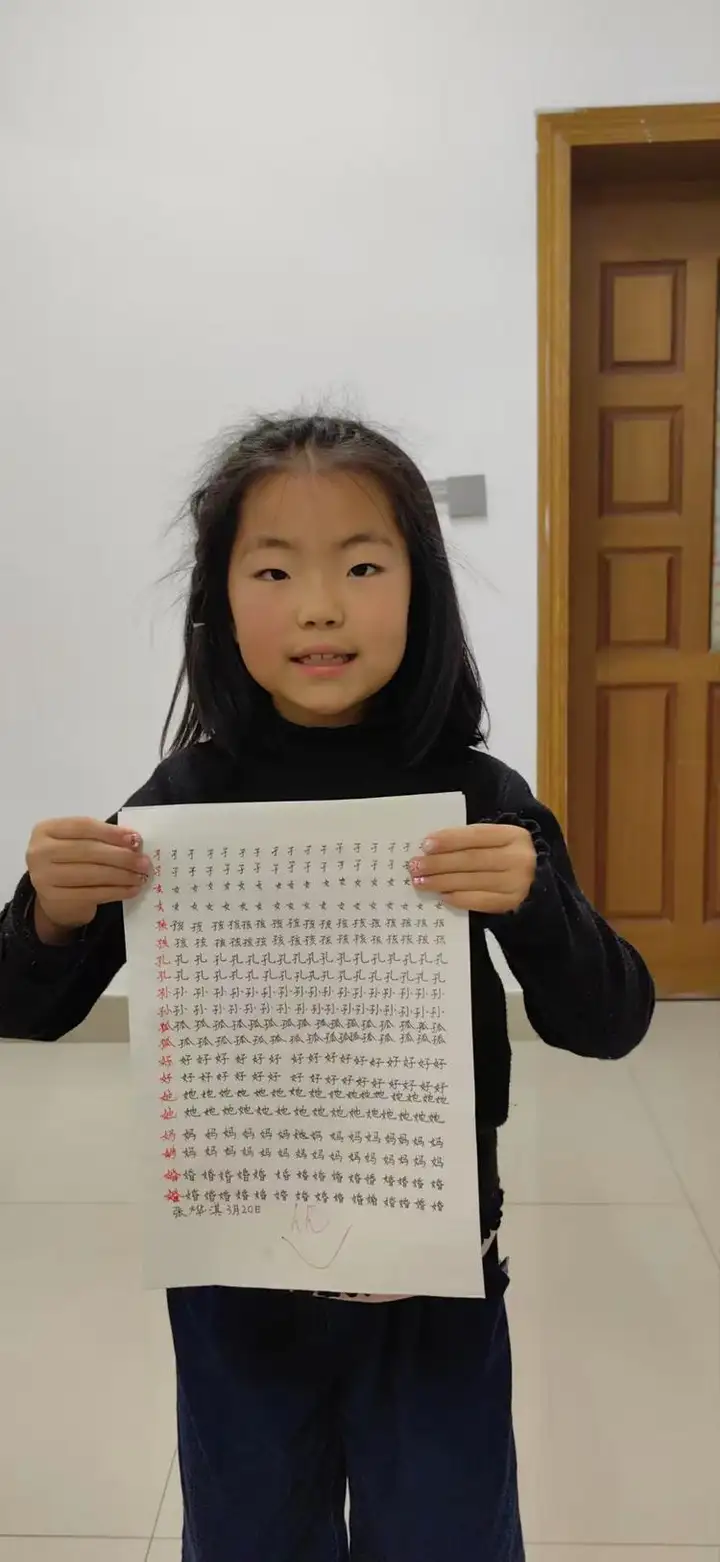 孑孑孑孑孑孑孑孑孑孑孑孑孑孑孑孑孑
孑孑孑孑孑孑孑孑孑孑孑孑孑孑孑孑
女女女女女女女女女女女女女女女女
女女女女女女女女女女女女女女女女女女
孩孩孩孩孩孩孩孩孩孩孩孩孩孩孩孩孩
孩孩孩孩孩孩孩孩孩孩孩孩孩孩孩孩孩
孔孔孔孔孔孔孔孔孔孔孔孔孔孔孔孔孔孔
孔孔孔孔孔孔孔孔孔孔孔孔孔孔孔孔孔孔
孙孙孙孙孙孙孙孙孙孙孙孙孙孙孙孙孙
孙孙孙孙孙孙孙孙孙孙孙孙孙孙孙孙孙
孤孤孤孤孤孤孤孤孤孤孤孤孤孤孤孤孤
孤孤孤孤孤孤孤孤孤孤孤孤孤孤孤孤孤
好好好好好好好好好好好好好好好好好
好好好好好好好好好好好好好好好好好
她她她她她她她她她她她她她她她她她
她她她她她她她她她她她她她她她她
妈妈妈妈妈妈妈她妈妈妈妈妈妈妈妈
妈妈妈妈妈妈妈妈妈妈妈妈妈妈妈妈
婚婚婚婚婚婚婚婚婚婚婚婚婚婚婚婚
婚婚婚婚婚婚婚婚婚婚婚婚婚婚婚婚
张烨淇 3月20日